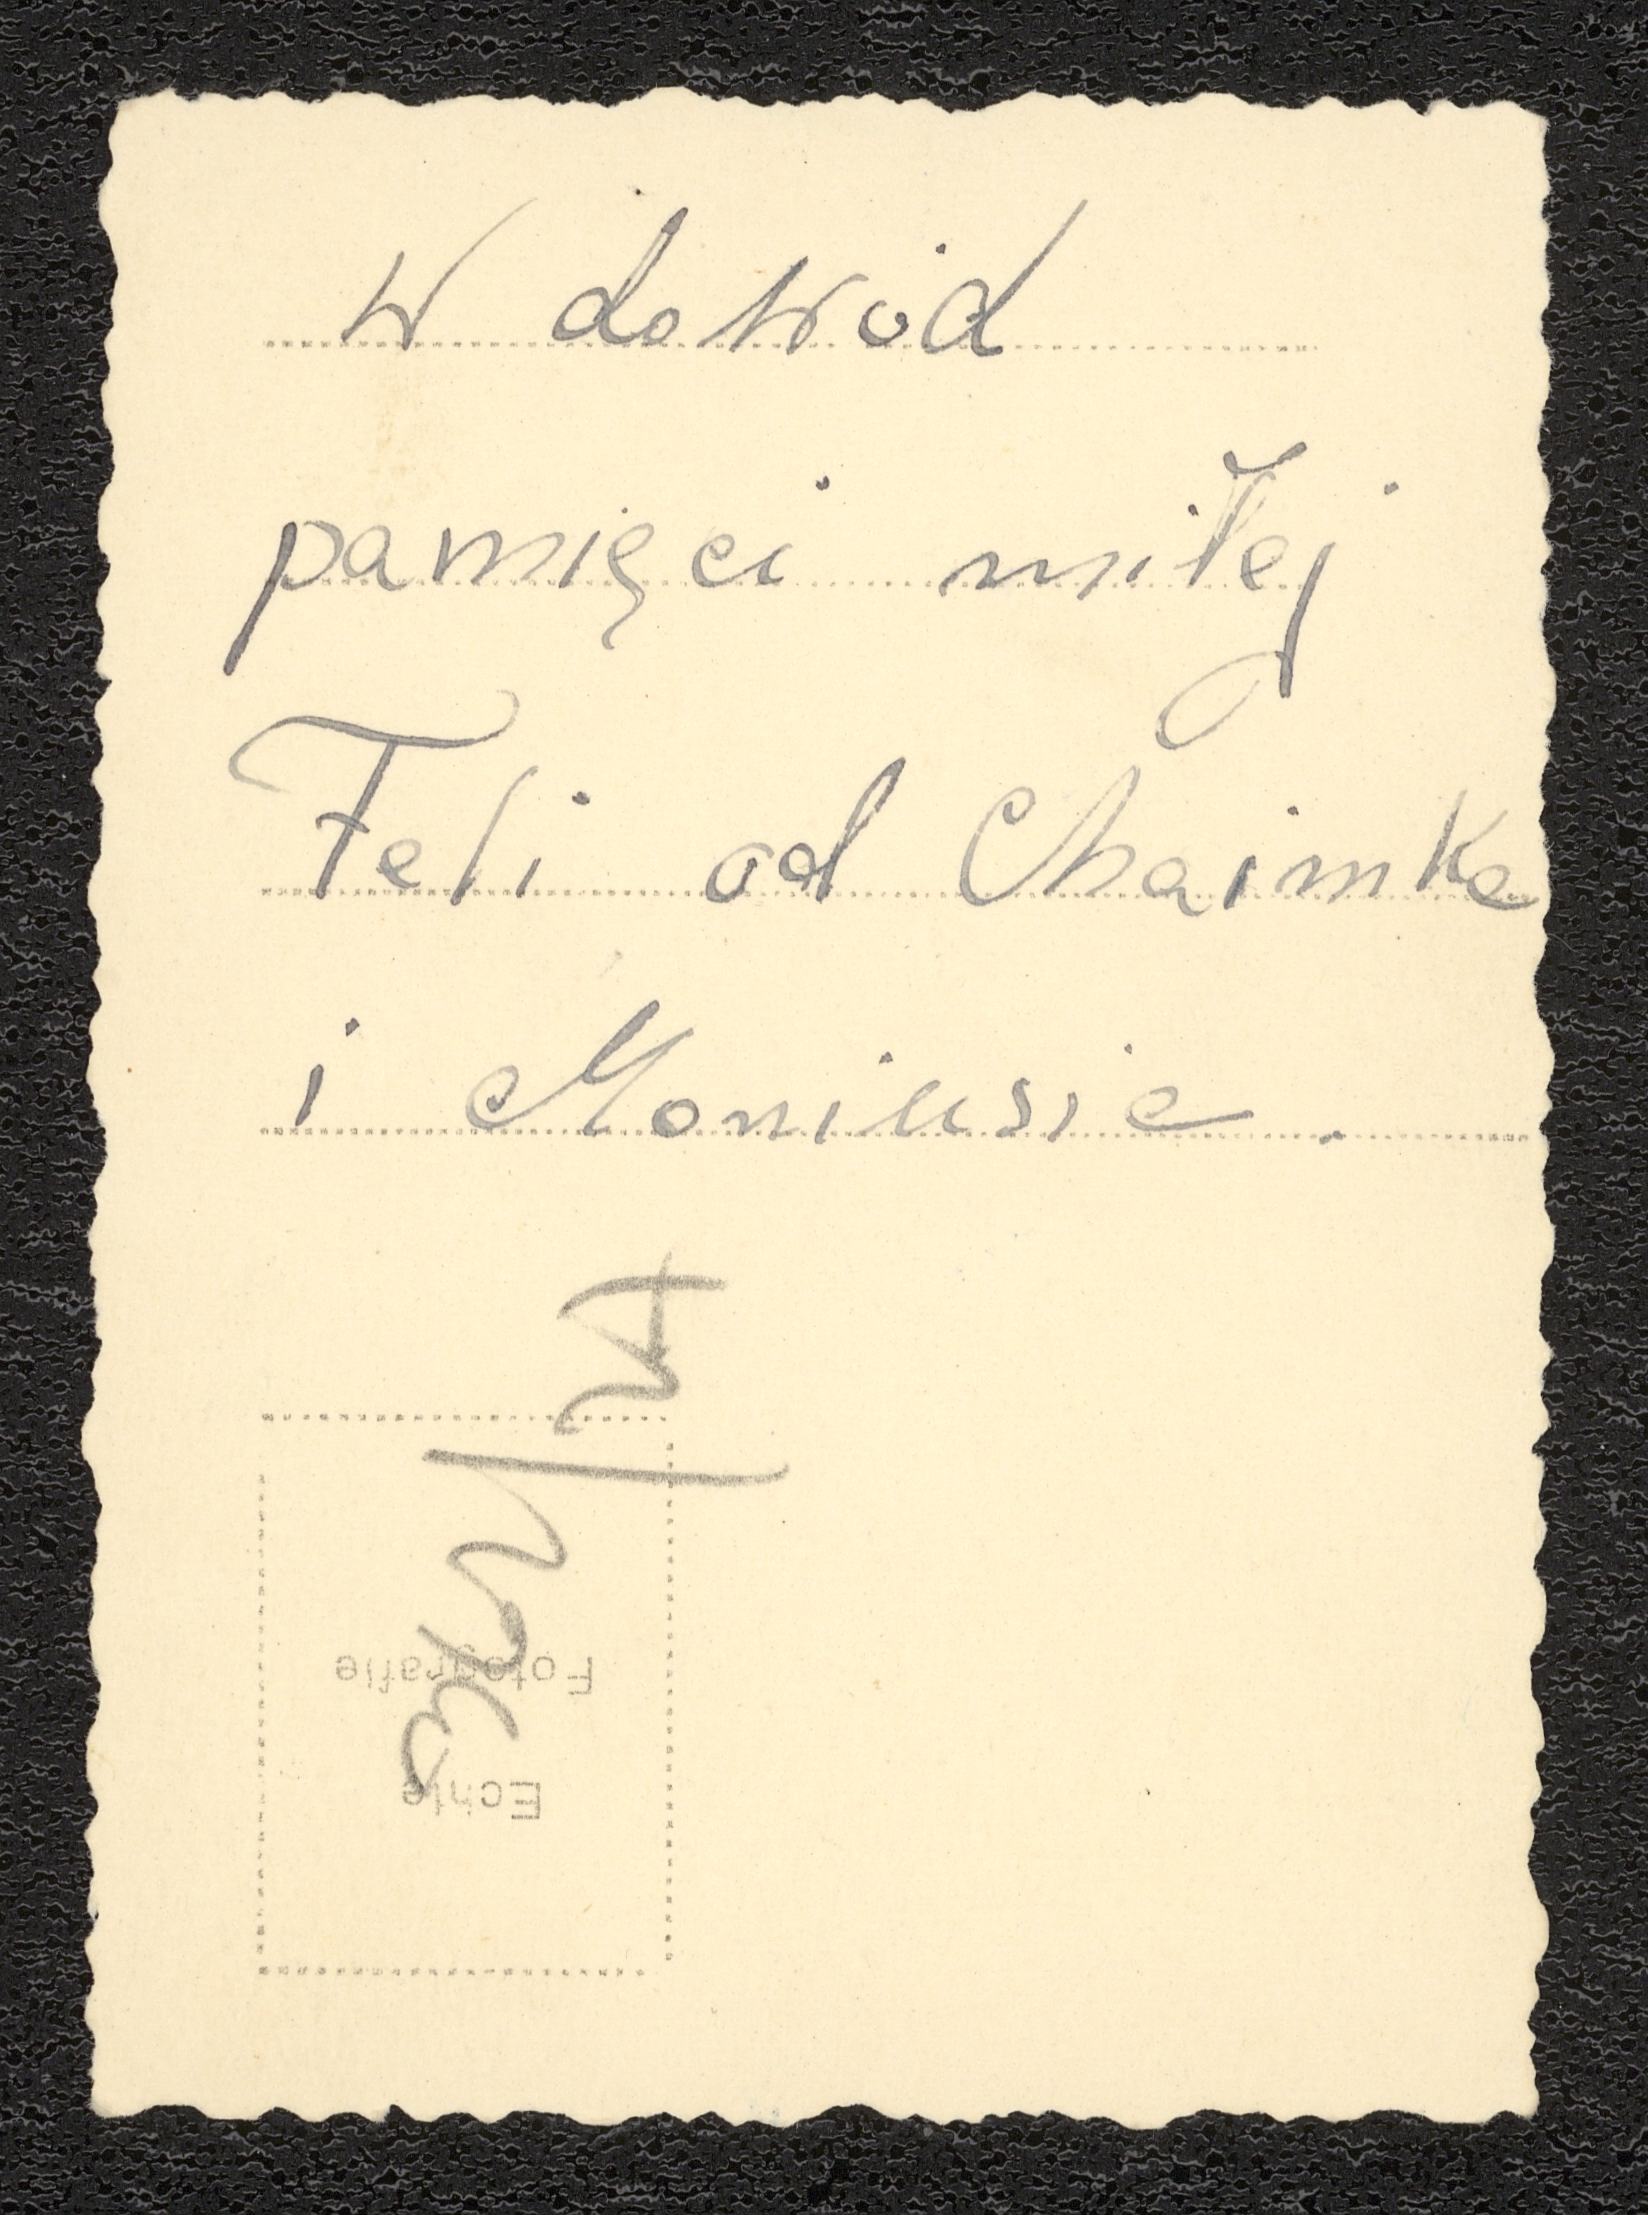 W dowód
pamięci miłej
Feli od Chaimka
i Moniusie.
Echte
Fotografie